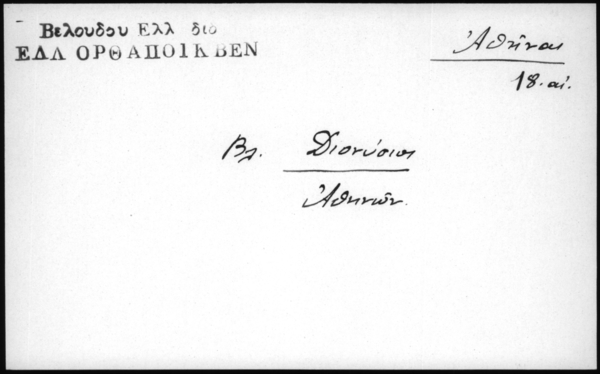 Βελουδου Ελλ διδ
ΕΛΛ ΟΡΘΑΠΟΙΚΒΕΝ
Ἀθῆναι
18. αἰ.
Βλ. Διονύσιος
Ἀθηνῶν.